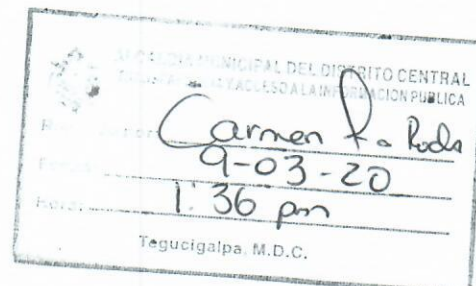 ALCALDIA MUNICIPAL DEL DISTRITO CENTRAL
Y ACCESO A LA INFORMACION PUBLICA
Carmen
9-03-20
Hora: 1:36 pm
Tegucigalpa, M.D.C.